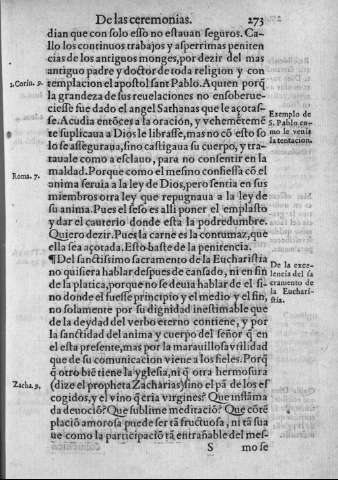 De las ceremonias. 273
dian que con solo esso no estauan seguros. Ca-
llo los continuos trabajos y asperrimas peniten
cias de los antiguos monges, por dezir del mas
antiguo padre y doctor de toda religion y con
2. Corin. 9. templacion el apostol sant Pablo. A quien porq̃
la grandeza de sus reuelaciones no ensoberue-
ciesse fue dado el angel Sathanas que le açotas-
se. Acudia entõces a la oración, y vehemẽtemẽ
te suplicaua a Dios le librasse, mas no cõ esto so
lo se asseguraua, sino castigaua su cuerpo, y tra-
tauale como a esclauo, para no consentir en la
maldad. Porque como el mesmo confiessa cõ el
Exemplo de
S. Pablo co-
mo le venia
la tentacion.
Roma. 7. anima seruia a la ley de Dios, pero sentia en sus
miembros otra ley que repugnaua a la ley de
su anima. Pues el seso es alli poner el emplasto
y dar el cauterio donde esta la podredumbre.
Quiero dezir. Pues la carne es la contumaz, que
ella sea açotada. Esto baste de la penitencia.
¶ Del sanctissimo sacramento de la Eucharistia
no quisiera hablar despues de cansado, ni en fin
de la platica, porque no se deuia hablar de el si-
no donde el fuesse principio y el medio y el fin,
no solamente por su dignidad inestimable que
De la exce-
lencia del sa
cramento de
la Eucharis-
tia.
de la deydad del verbo eterno contiene, y por
la sanctidad del anima y cuerpo del señor q̃ en
el esta presente, mas por la marauillosa vtilidad
que de su comunicacion viene a los fieles. Porq̃
q̃ otro biẽ tiene la yglesia, ni q̃ otra hermosura
Zacha. 9. (dize el propheta Zacharias) sino el pã de los es
cogidos, y el vino q̃ cria virgines? Que inflãma
da deuociõ? Que sublime meditaciõ? Que cõtẽ
placiõ amorosa puede ser tã fructuosa, ni tã sua
ue como la participaciõ tã entrañable del mes-
S mo se